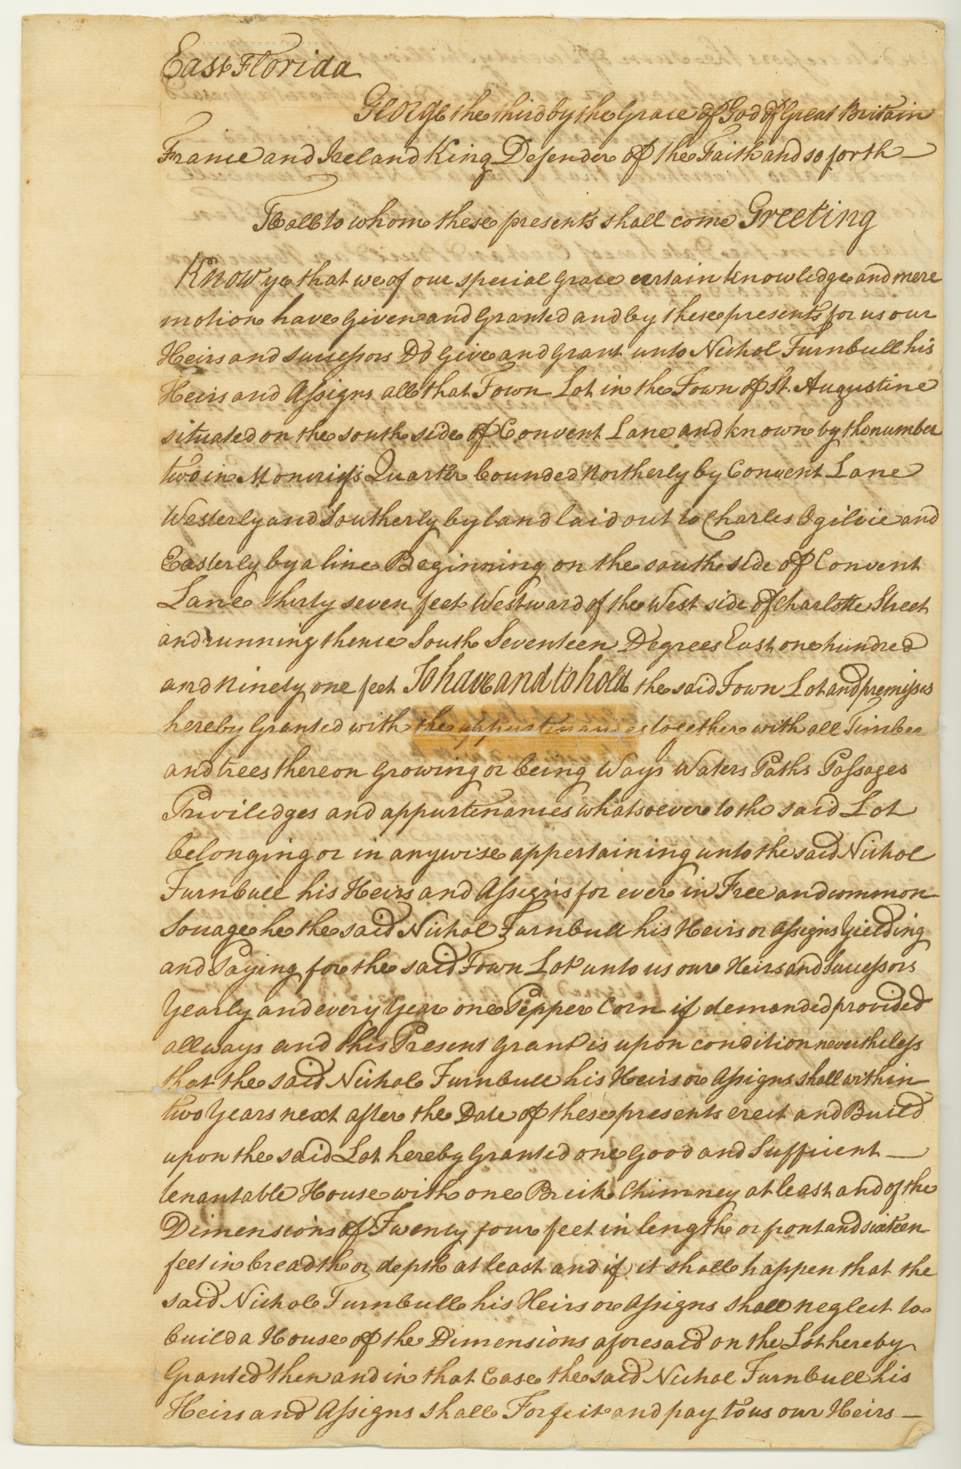 East Florida
George the third by the Grace of God of Great Britain
France and Ireland King Defender of the Faith and so forth —
To all to whom these presents shall come Greeting
Know ye that we of our special Grace certain knowledge and mere
motion have given and Granted and by these presents for us our
Heirs and successors Do Give and Grant unto Nichol Turnbull his
Heirs and Assigns all that Town Lot in the Town of St. Augustine
situated on the south side of Convent Lane and known by the number
two in Moncrifs Quarter bounded Northerly by Convent Lane
Westerly and Southerly by land laid out to Charles Ogilvie and
Easterly by a line Beginning on the south side of Convent
Lane thirty seven feet Westward of the West side of Charlotte Street
and running thence South Seventeen Degrees East one hundred
and Ninety one feet To have and to hold the said Town Lot and premisses
hereby Granted with the appurtenances together with all Timber
and trees thereon Growing or being Ways Waters Paths Passages
Priviledges and appurtenances whatsoever to the said Lot
belonging or in anywise appertaining unto the said Nichol
Turnbull his Heirs and Assigns for ever in Free and common
Soccage he the said Nichol Turnbull his Heirs or Assigns Yielding
and Paying for the said Town Lot unto us our Heirs and Successors
Yearly and every Year one Pepper Corn if demanded provided
allways and this Present Grant is upon condition nevertheless
that the said Nichol Turnbull his Heirs or Assigns shall within
two Years next after the Date of these presents erect and Build
upon the said Lot hereby Granted one Good and Sufficient —
tenantable House with one Brick Chimney at least and of the
Dimensions of Twenty four feet in length or front and sixteen
feet in breadth or depth at least and if it shall happen that the
said Nichol Turnbull his Heirs or Assigns shall neglect to
build a House of the Dimensions aforesaid on the Lot hereby
Granted then and in that Case the said Nichol Turnbull his
Heirs and Assigns shall Forfeit and pay to us our Heirs —